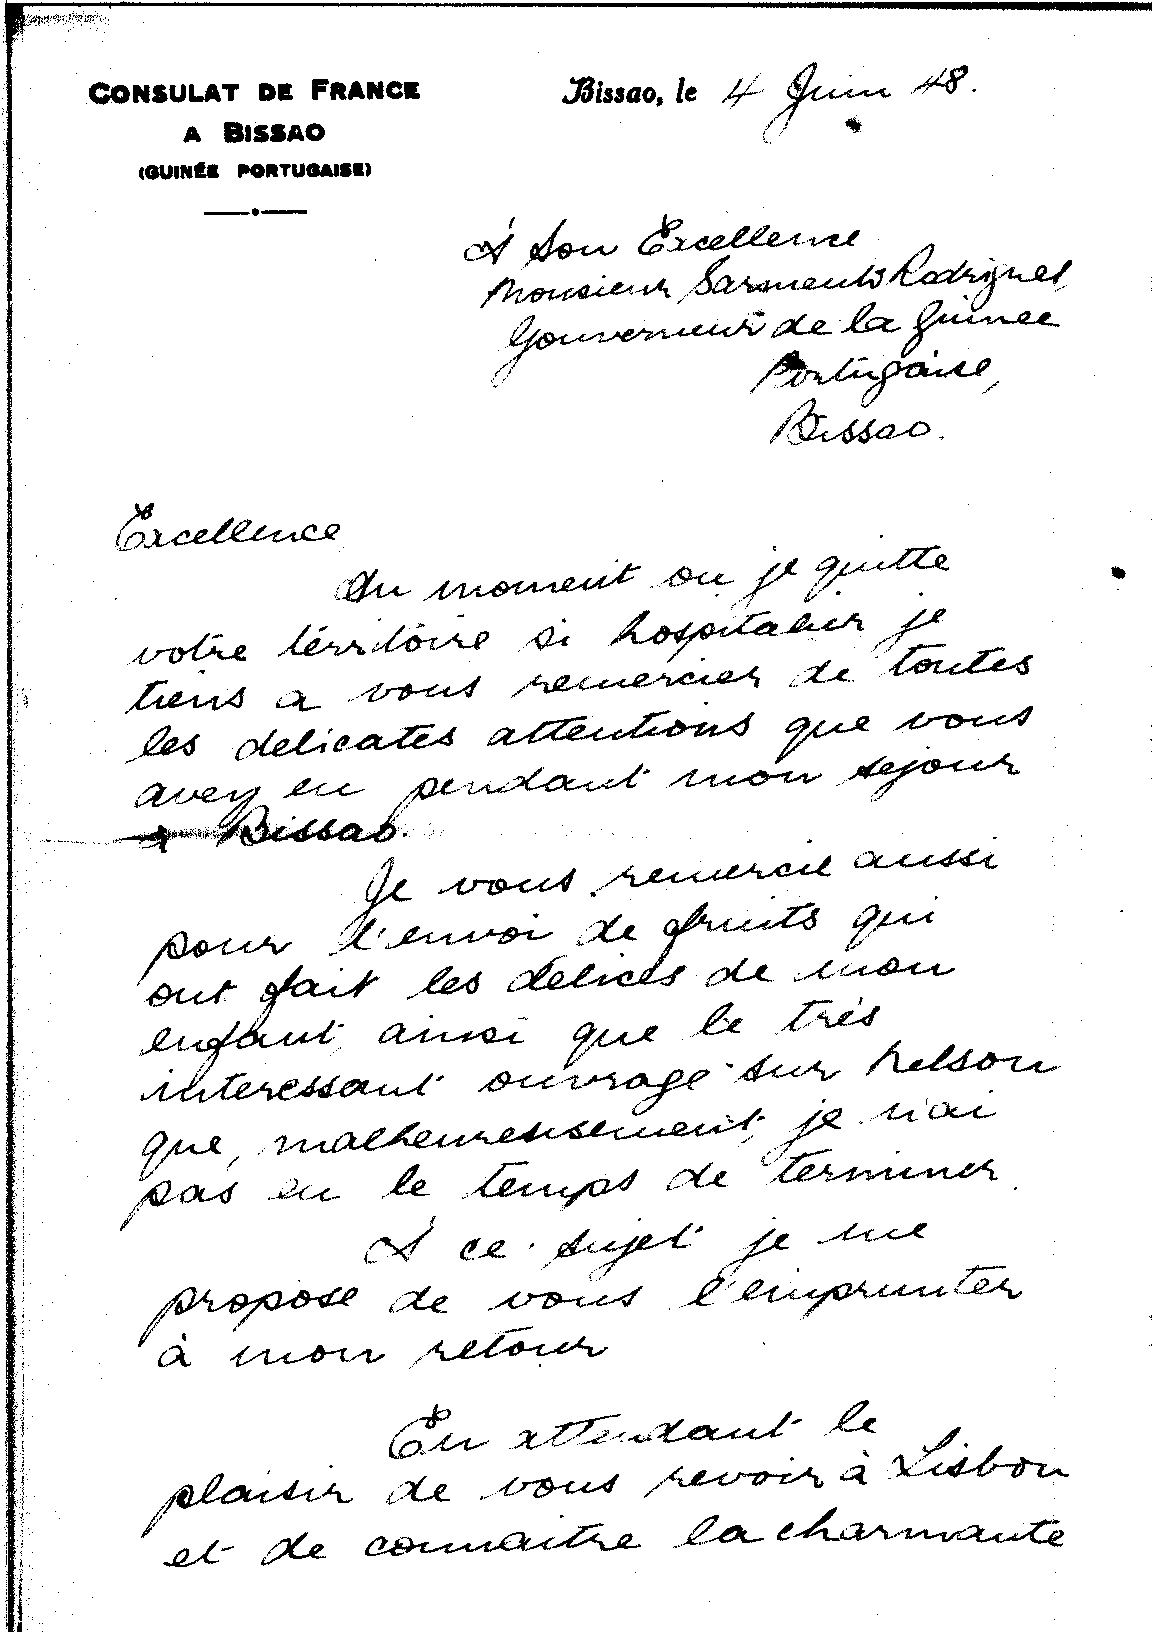 CONSULAT DE FRANCE
A BISSAO
(GUINÉE PORTUGAISE)
Bissao, le 4 Juin 48.
A Son Excellence
Monsieur Sarmento Rodrigues,
Gouverneur de la Guinee
Portugaise,
Bissao.
Excellence
Au moment ou je quitte
votre térritoire si hospitalier je
tiens a vous remercier de toutes
les delicates attentions que vous
avez eu pendant mon sejour
a Bissao.
Je vous remercie aussi
pour l'envoi de fruits qui
ont fait les délices de mon
enfant, ainsi que le trés
interessant ouvrage sur Nelson
que, malheureusement, je n'ai
pas eu le temps de terminer.
A ce sujet je me
propose de vous l'emprunter
à mon retour
En attendant le
plaisir de vous revoir à Lisbon
et de connaitre la charmante